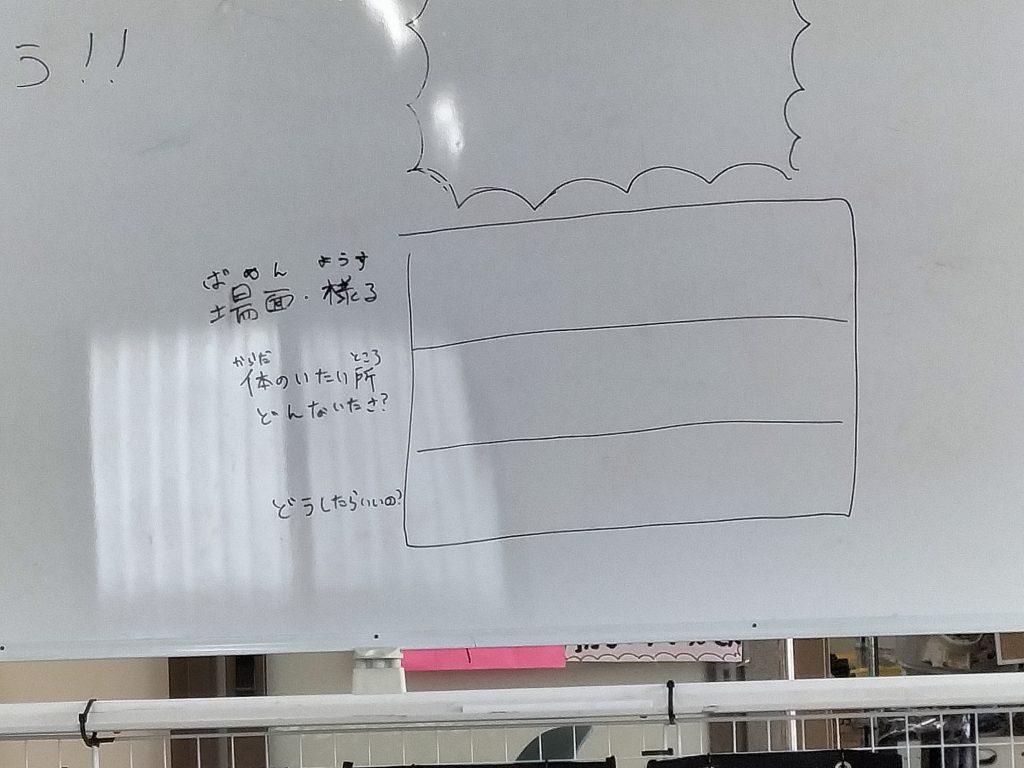 う!!
ばめん ようす
場面・様子
からだ ところ
体のいたい所
どんないたさ?
どうしたらいいの?